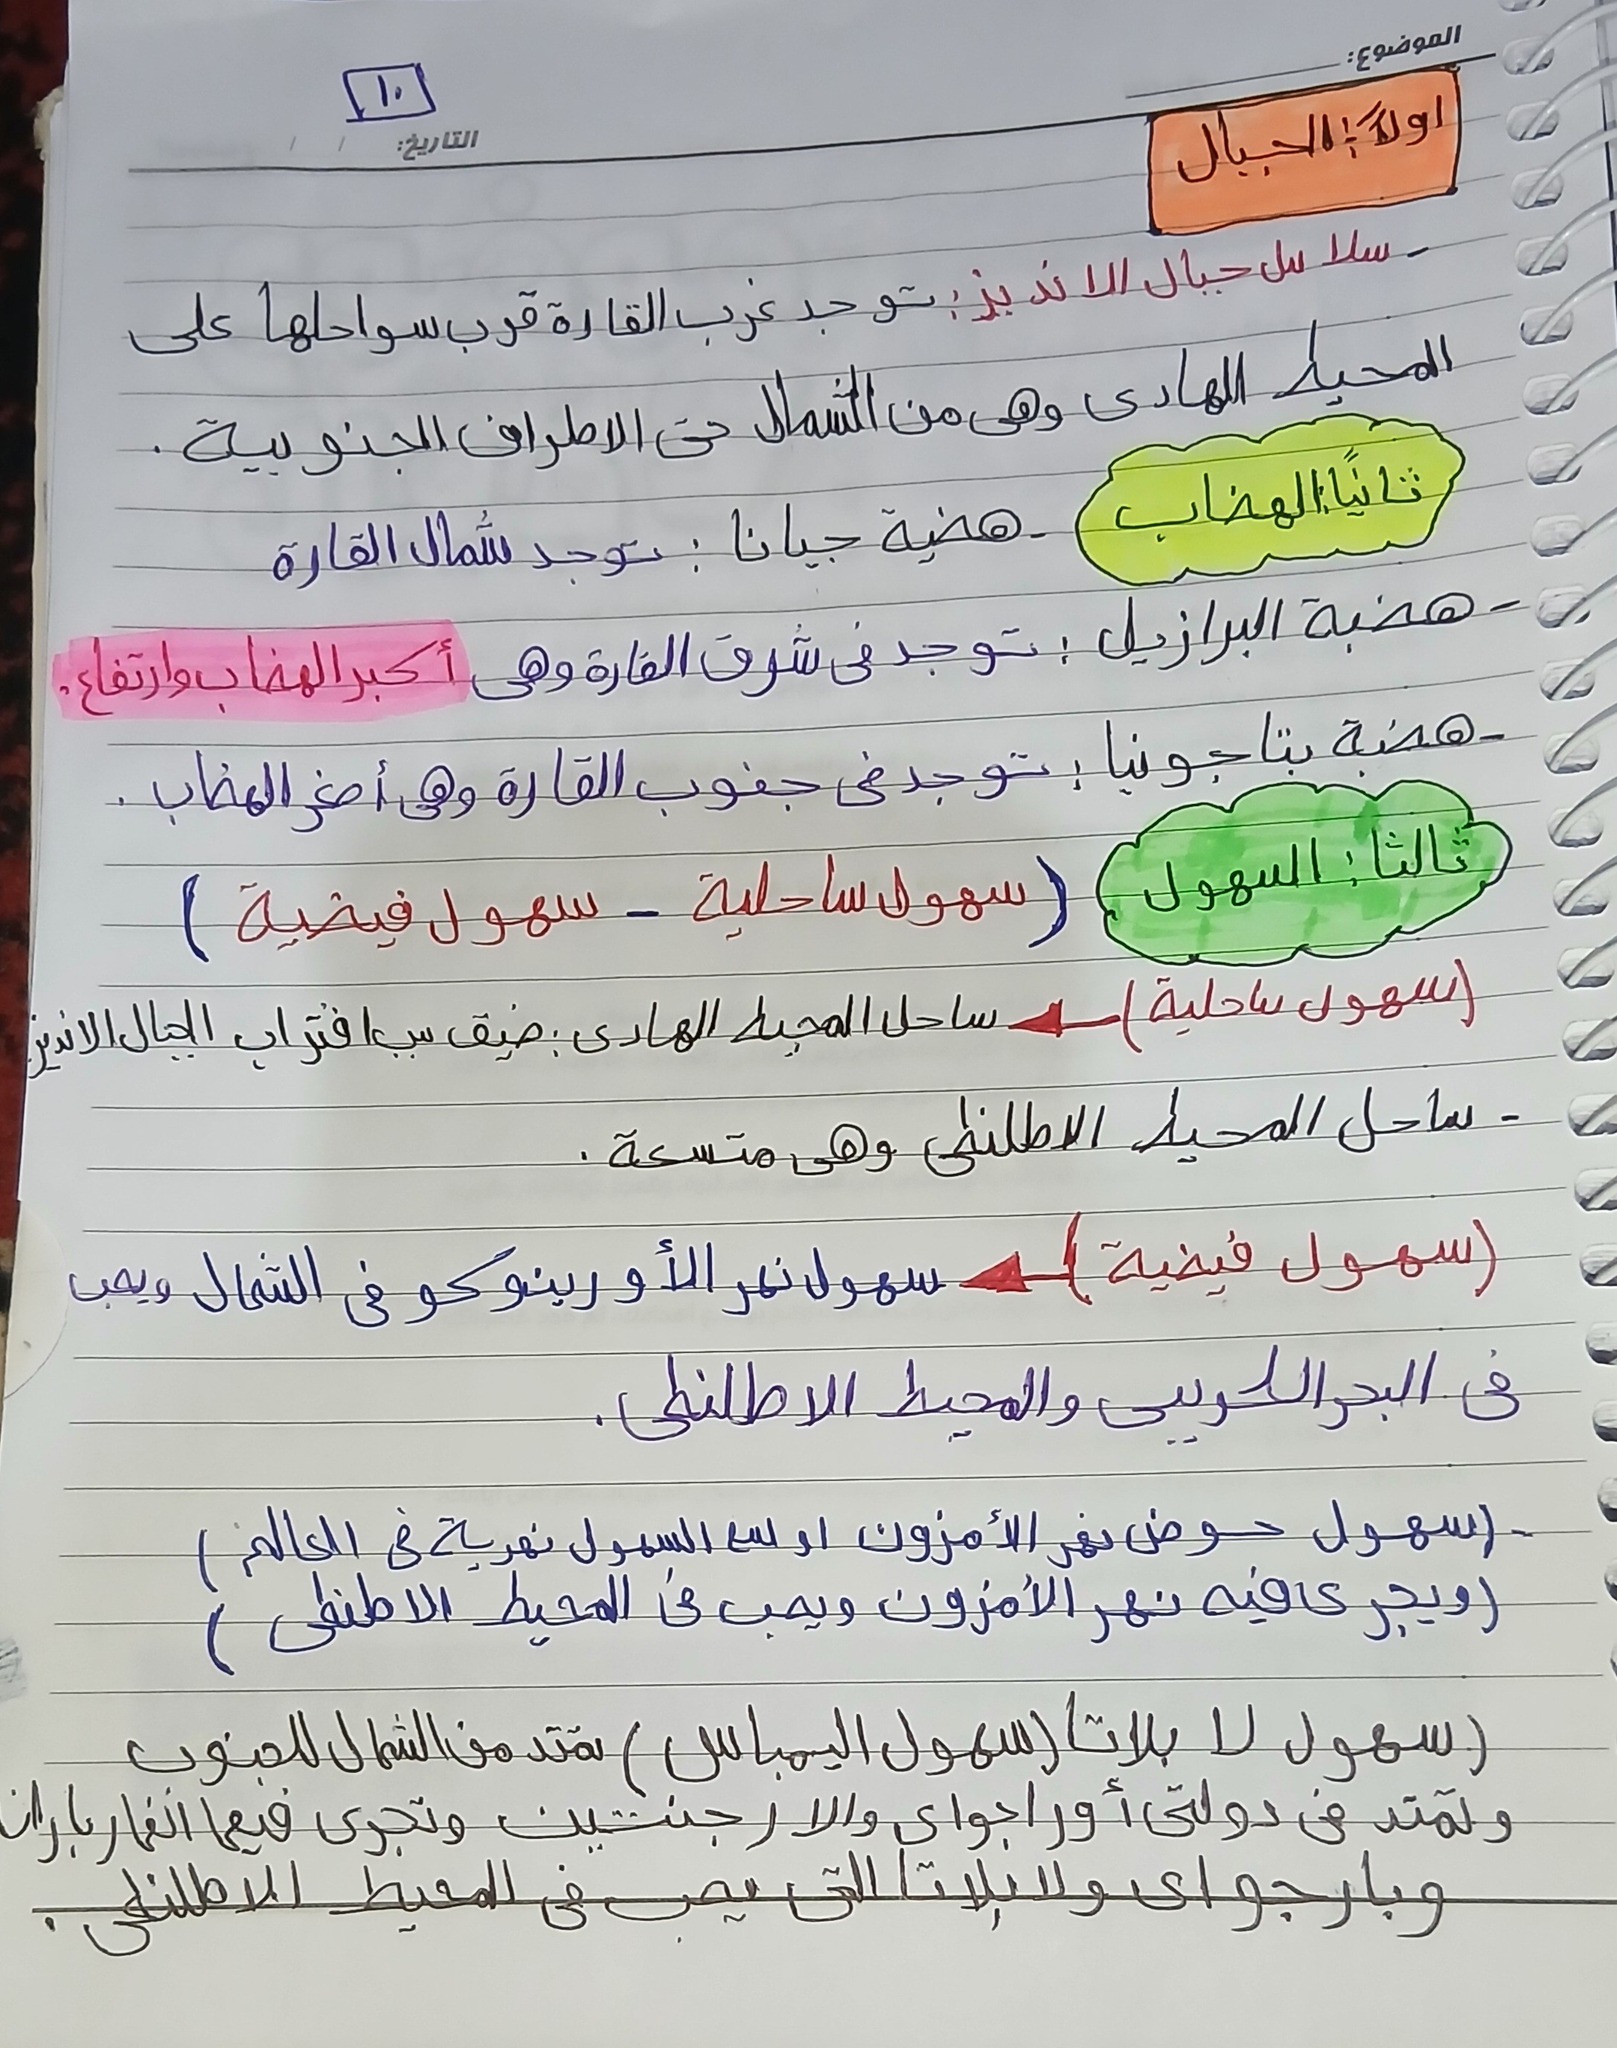 الموضوع:
١٠
التاريخ: / /
اولاً: الجبال
- سلاسل جبال الانديز: توجد غرب القارة قرب سواحلها على
المحيط الهادى وهى من الشمال حتى الاطراف الجنوبية.
ثانيًا: الهضاب - هضبة جيانا: توجد شمال القارة
- هضبة البرازيل: توجد فى شرق القارة وهى أكبر الهضاب وارتفاع.
- هضبة بتاجونيا: توجد فى جنوب القارة وهى أصغر الهضاب.
ثالثا: السهول (سهول ساحلية - سهول فيضية)
(سهول ساحلية) ساحل المحيط الهادى: ضيق بسبب اقتراب الجبال الانديز
- ساحل المحيط الاطلنطى وهى متسعة.
(سهول فيضية) سهول نهر الأورينوكو فى الشمال ويصب
فى البحر الكريبى والمحيط الاطلنطى.
- (سهول حوض نهر الأمزون اوسع السهول نهرية فى العالم)
(ويجرى فيه نهر الأمزون ويصب فى المحيط الاطنطى)
(سهول لا بلاتا (سهول اليمباس) تمتد من الشمال للجنوب
وتمتد فى دولتى أوراجواى والارجنتين وتجرى فيها انهار بارانا
وبارجواى ولابلاتا التى يصب فى المحيط الاطلنطى.